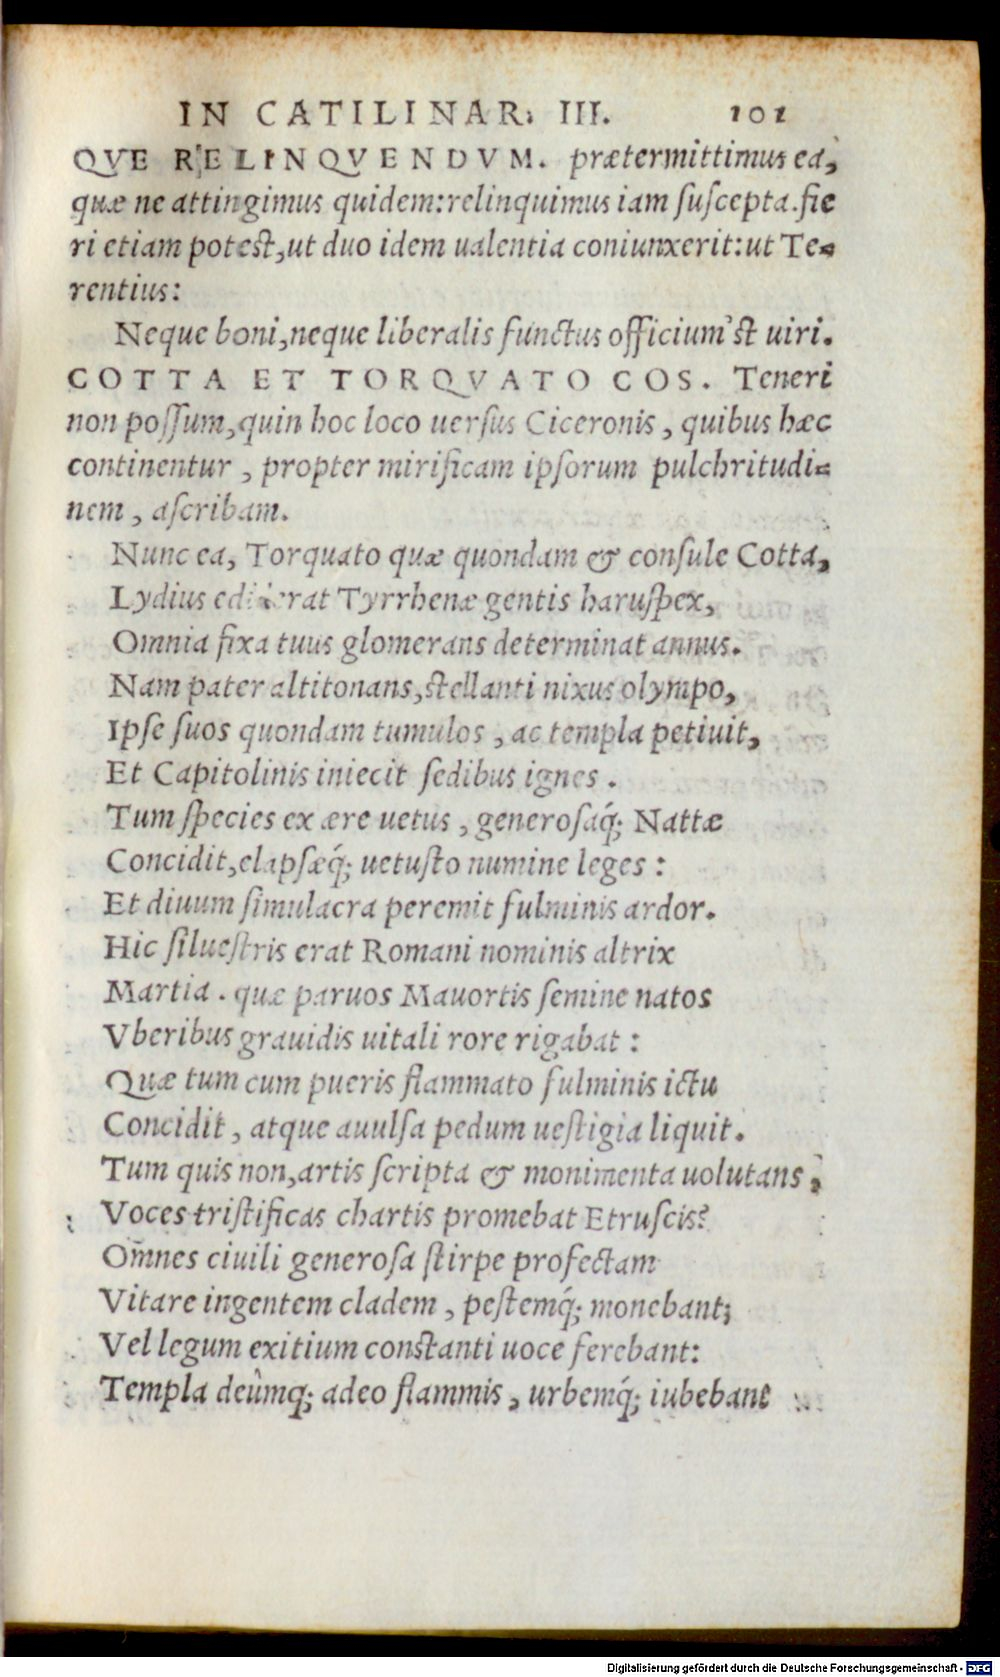 IN CATILINAR: III. 101
QVE RELINQVENDVM. prætermittimus ea,
quæ ne attingimus quidem: relinquimus iam suscepta. fie
ri etiam potest, ut duo idem ualentia coniunxerit: ut Te-
rentius:
Neque boni, neque liberalis functus officium'st uiri.
COTTA ET TORQVATO COS. Teneri
non possum, quin hoc loco uersus Ciceronis, quibus hæc
continentur, propter mirificam ipsorum pulchritudi-
nem, ascribam.
Nunc ea, Torquato quæ quondam & consule Cotta,
Lydius ediderat Tyrrhenæ gentis haruspex,
Omnia fixa tuus glomerans determinat annus.
Nam pater altitonans, stellanti nixus olympo,
Ipse suos quondam tumulos, ac templa petiuit,
Et Capitolinis iniecit sedibus ignes.
Tum species ex ære uetus, generosaq́; Nattæ
Concidit, elapsæq́; uetusto numine leges:
Et diuum simulacra peremit fulminis ardor.
Hic siluestris erat Romani nominis altrix
Martia. quæ paruos Mauortis semine natos
Vberibus grauidis uitali rore rigabat:
Quæ tum cum pueris flammato fulminis ictu
Concidit, atque auulsa pedum uestigia liquit.
Tum quis non, artis scripta & monimenta uolutans,
Voces tristificas chartis promebat Etruscis?
Om̃nes ciuili generosa stirpe profectam
Vitare ingentem cladem, pestemq́; monebant;
Vel legum exitium constanti uoce ferebant:
Templa deûmq; adeo flammis, urbemq́; iubebant
Digitalisierung gefördert durch die Deutsche Forschungsgemeinschaft - DFG